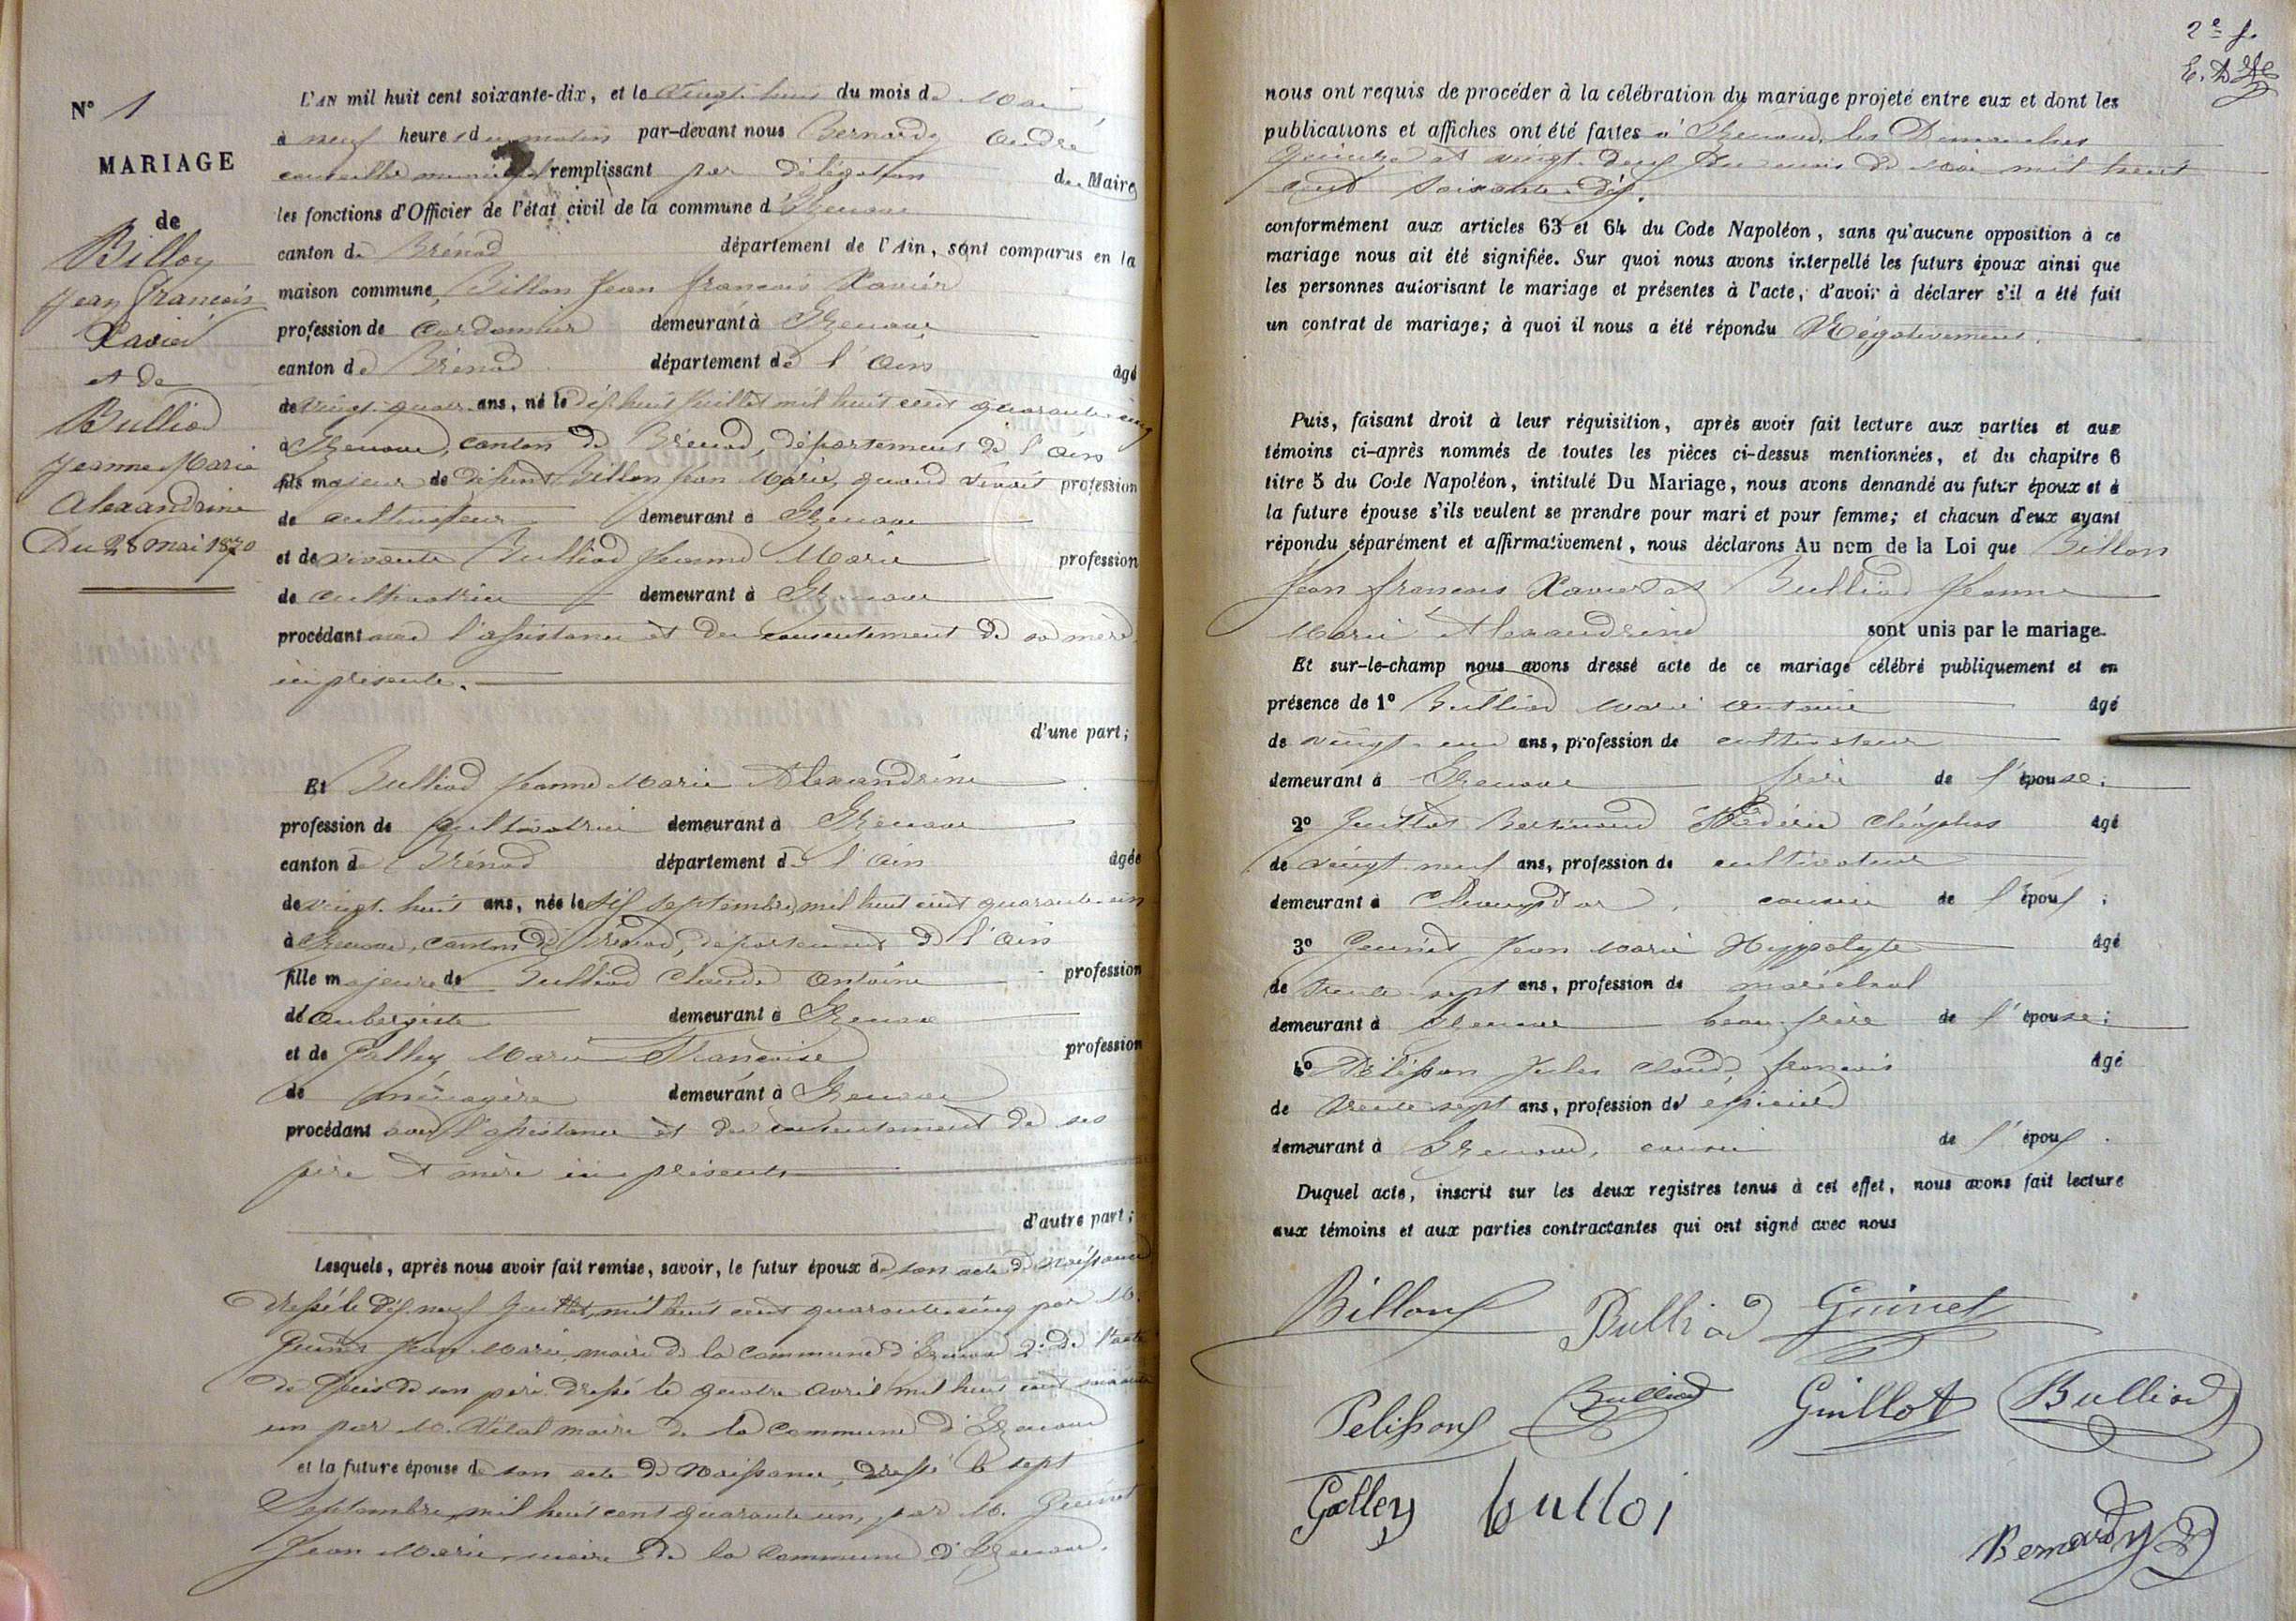 N° 1
MARIAGE
de
Billon
Jean François
Xavier
et de
Bulliod
Jeanne Marie
Alexandrine
Du 28 mai 1870
L'AN mil huit cent soixante-dix, et le vingt-huit du mois de Mai
à neuf heures du matin par-devant nous Bernardy André
conseiller municipal remplissant par délégation du Maire
les fonctions d'Officier de l'état civil de la commune d'Izenave
canton de Brénod département de l'Ain, sont comparus en la
maison commune Billon Jean François Xavier
profession de Cordonnier demeurant à Izenave
canton de Brénod département de l'Ain âgé
de vingt-quatre ans, né le dix huit Juillet mil huit cent quarante-cinq
à Izenave, canton de Brénod, département de l'Ain
fils majeur de défunt Billon Jean Marie, quand vivait profession
de cultivateur demeurant à Izenave
et de vivante Bulliod Jeanne Marie profession
de cultivatrice demeurant à Izenave
procédant avec l'assistance et du consentement de sa mère
ici présente.
d'une part;
Et Bulliod Jeanne Marie Alexandrine
profession de Cultivatrice demeurant à Izenave
canton de Brénod département de l'Ain âgée
de vingt-huit ans, née le six septembre mil huit cent quarante-un
à Izenave, canton de Brénod, département de l'Ain
fille majeure de Bulliod Claude Antoine profession
de aubergiste demeurant à Izenave
et de Galley Marie Françoise profession
de ménagère demeurant à Izenave
procédant avec l'assistance et du consentement de ses
père et mère ici présents
d'autre part;
Lesquels, après nous avoir fait remise, savoir, le futur époux de son acte de naissance
dressé le dix-neuf Juillet, mil huit cent quarante-cinq par M.
Guinet Jean Marie, maire de la commune d'Izenave 2° de l'acte
de décès de son père dressé le quatre avril mil huit cent soixante
un par M. Vital maire de la commune d'Izenave
et la future épouse de son acte de naissance, dressé le sept
Septembre, mil huit cent quarante un, par M. Guinet
Jean Marie, maire de la commune d'Izenave.
2e f.
nous ont requis de procéder à la célébration du mariage projeté entre eux et dont les
publications et affiches ont été faites à Izenave, les Dimanches
Quinze et vingt-deux du mois de mai mil huit
cent soixante-dix.
conformément aux articles 63 et 64 du Code Napoléon, sans qu'aucune opposition à ce
mariage nous ait été signifiée. Sur quoi nous avons interpellé les futurs époux ainsi que
les personnes autorisant le mariage et présentes à l'acte, d'avoir à déclarer s'il a été fait
un contrat de mariage; à quoi il nous a été répondu Négativement.
Puis, faisant droit à leur réquisition, après avoir fait lecture aux parties et aux
témoins ci-après nommés de toutes les pièces ci-dessus mentionnées, et du chapitre 6
titre 5 du Code Napoléon, intitulé Du Mariage, nous avons demandé au futur époux et à
la future épouse s'ils veulent se prendre pour mari et pour femme; et chacun d'eux ayant
répondu séparément et affirmativement, nous déclarons Au nom de la Loi que Billon
Jean François Xavier et Bulliod Jeanne
Marie Alexandrine sont unis par le mariage.
Et sur-le-champ nous avons dressé acte de ce mariage célébré publiquement et en
présence de 1° Bulliod Marie Antoine âgé
de vingt-un ans, profession de cultivateur
demeurant à Izenave frère de l'épouse;
2° Guillot Frédéric Cléophas âgé
de vingt-neuf ans, profession de cultivateur
demeurant à Champdor, cousin de l'époux;
3° Guinet Jean Marie Hyppolyte âgé
de trente-sept ans, profession de maréchal
demeurant à Izenave beau-frère de l'épouse;
4° Pélisson Jules Claude François âgé
de trente-sept ans, profession de épicier
demeurant à Izenave, cousin de l'époux.
Duquel acte, inscrit sur les deux registres tenus à cet effet, nous avons fait lecture
aux témoins et aux parties contractantes qui ont signé avec nous
Billon Bulliod Guinet
Pelisson Bulliod Guillot Bulliod
Galley bulloi
Bernardy